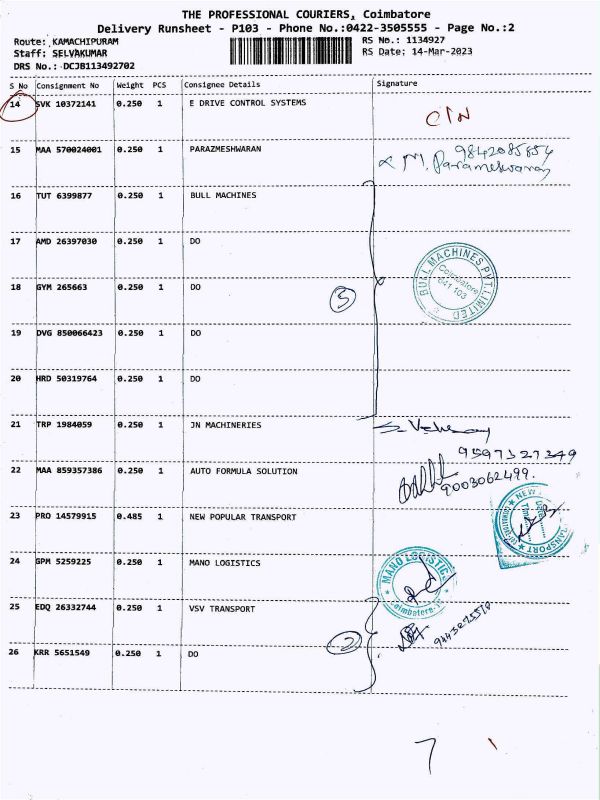 THE PROFESSIONAL COURIERS, Coimbatore
Delivery Runsheet - P103 - Phone No.:0422-3505555 - Page No.:2
Route: KAMACHIPURAM RS No.: 1134927
Staff: SELVAKUMAR RS Date: 14-Mar-2023
DRS No.: DCJB113492702
S No Consignment No Weight PCS Consignee Details Signature
14 SVK 10372141 0.250 1 E DRIVE CONTROL SYSTEMS
15 MAA 570024001 0.250 1 PARAZMESHWARAN 9842085854
M. Parameswaran
16 TUT 6399877 0.250 1 BULL MACHINES
17 AMD 26397030 0.250 1 DO
BULL MACHINES PVT LIMITED
Coimbatore
641 103
18 GYM 265663 0.250 1 DO
5
19 DVG 850066423 0.250 1 DO
20 HRD 50319764 0.250 1 DO
21 TRP 1984059 0.250 1 JN MACHINERIES
9597327349
22 MAA 859357386 0.250 1 AUTO FORMULA SOLUTION
9003062499.
23 PRO 14579915 0.485 1 NEW POPULAR TRANSPORT
NEW
TRANSPORT
24 GPM 5259225 0.250 1 MANO LOGISTICS
MANO LOGISTIC
Coimbatore
25 EDQ 26332744 0.250 1 VSV TRANSPORT
2
26 KRR 5651549 0.250 1 DO
7